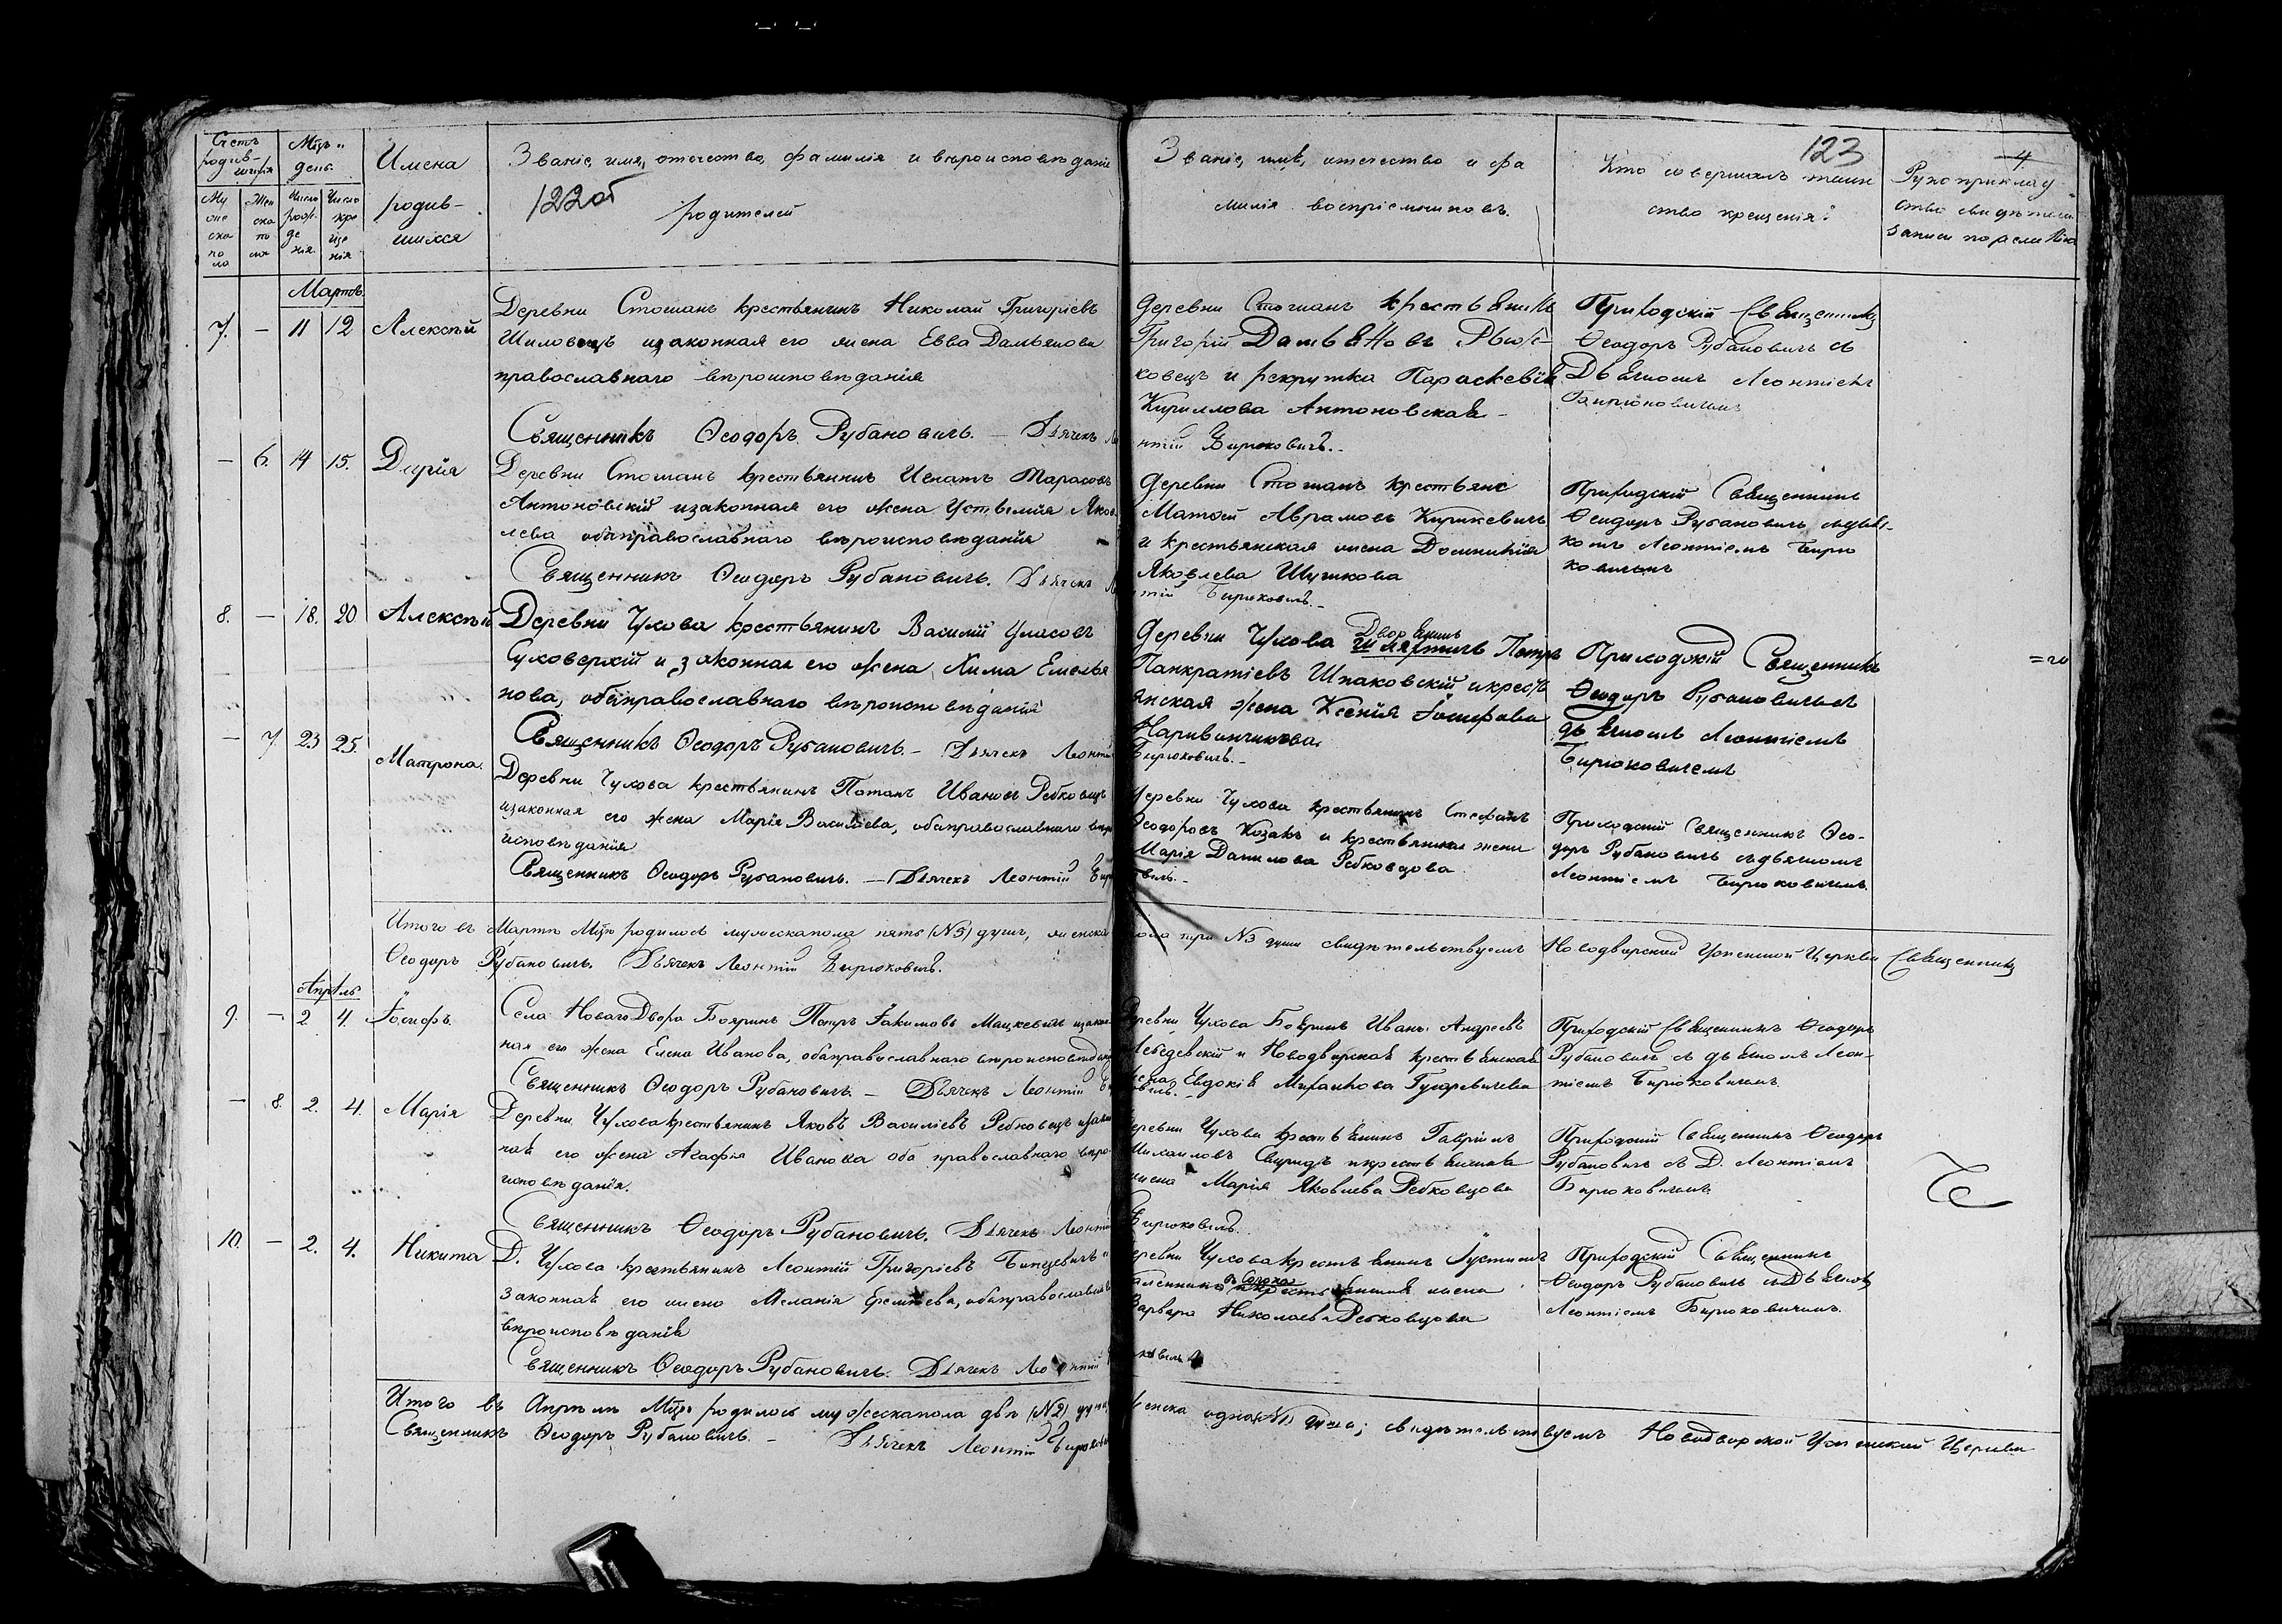 Счетъ родив-шихся
Мцъ и день.
Имена родив-шихся
Званіе, имя, отчество, фамилія и вѣроисповѣданіе родителей
122об
Му жеска пола
Жен ска по ла
Число рожде нія.
Число кре ще нія
Званіе, имя, отчество и фа
милія воспріемниковъ.
Кто совершалъ таин
ство крещенія?
123
4
Рукоприклад
ство свидѣтелей
записи по желанію
Мартъ
7. — 11 12 Алексѣй
Деревни Стошанъ крестьянинъ Николай Григоріевъ
Шиловецъ изаконная его жена Евва Дамьянова
православнаго вѣроисповѣданія
Священникъ Ѳеодоръ Рубановичъ. — Дьячекъ
Деревни Стошанъ крестьянинъ
Григорій
ковецъ и рекрутка Параскевія
Кириллова Антоновская —
нтій Бирюковичъ. —
Приходскій Священникъ
Ѳеодоръ Рубановичъ съ
Дьячкомъ Леонтіемъ
Бирюковичемъ
— 6. 14 15. Дарія
Деревни Стошанъ крестьянинъ Игнатъ Тарасовъ
Антоновскій изаконная его жена Устимія Яков
лева оба православнаго вѣроисповѣданія
Священникъ Ѳеодоръ Рубановичъ. Дьячекъ
Деревни Стошанъ крестьянс
Матѳей Аврамовъ Кирикевичъ
и крестьянская жена Домникія
Яковлева Шушкова
нтій Бирюковичъ. —
Приходскій Священникъ
Ѳеодоръ Рубановичъ съдьяч-
комъ Леонтіемъ Бирю
ковичемъ
8. — 18. 20 Алексѣй
Деревни Чухова крестьянинъ Василій Уласовъ
Суховерхій и законная его жена Хима Емелья
нова, оба православнаго вѣроисповѣданія
Священникъ Ѳеодоръ Рубановичъ. — Дьячекъ Леонтій
Дворянинъ
Деревни Чухова шляхтичъ Петръ
Панкратіевъ Шпаковскій икресть
янская жена Ксенія Іосифова
Бирюковичъ. —
Приходскій Священникъ
Ѳеодоръ Рубановичъ съ
дьячкомъ Леонтіемъ
Бирюковичемъ
— 7. 23 25. Матрона.
Деревни Чухова крестьянинъ Потапъ Ивановъ Ребковецъ
изаконная его жена Марія Васильева, оба православнаго вѣро
исповѣданія
Священникъ Ѳеодоръ Рубановичъ. — Дьячекъ Леонтій Бирю
Деревни Чухова крестьянинъ Стефанъ
Ѳеодоровъ Козакъ и крестьянская жена
Марія Данилова Ребковцова
вичъ. —
Приходскій Священникъ Ѳео-
доръ Рубановичъ съдьячкомъ
Леонтіемъ Бирюковичемъ.
Итого въ Мартѣ Мцѣ родилось мужескапола пять (№5) душъ, женска
пола три №3 души свидѣтельствуемъ Новодворской Успенской Церкви Священникъ
Ѳеодоръ Рубановичъ. Дьячекъ Леонтій Бирюковичъ.
Апрѣль
9. — 2 4. Іосифъ.
Села Новаго Двора Бояринъ Петръ Іакимовъ Мацкевичъ изакон
ная его жена Елена Иванова, оба православнаго вѣроисповѣданія
Священникъ Ѳеодоръ Рубановичъ. — Дьячекъ Леонтій
Деревни Чухова Бояринъ Иванъ Андреевъ
Лебедевскій и Новодворская крестьянская
жена Евдокія Михайлова Гугаревичева
Приходскій Священникъ Ѳеодоръ
Рубановичъ съ дьячкомъ Леон-
тіемъ Бирюковичемъ.
— 8. 2. 4. Марія
Деревни Чухова крестьянинъ Яковъ Василіевъ Ребковецъ изакон
ная его жена Агафія Иванова оба православнаго вѣро
исповѣданія.
Священникъ Ѳеодоръ Рубановичъ. Дьячекъ Леонтій
Деревни Чухова крестьянинъ Гавріилъ
Михаиловъ Свиридъ икрестьянская
жена Марія Яковлева Ребковцова
Бирюковичъ.
Приходскій Священникъ Ѳеодоръ
Рубановичъ съ Д. Леонтіемъ
Бирюковичемъ
10. — 2. 4. Никита
Д. Чухова крестьянинъ Леонтій Григоріевъ Бинцевичъ и
законная его жена Меланія Еремѣева, оба православнаго
вѣроисповѣданія
Священникъ Ѳеодоръ Рубановичъ. Дьячекъ Леонтій
Деревни Чухова крестьянинъ Іустинъ
жена
Варвара Николаева Ребковцова
ковичъ
Приходскій Священникъ
Ѳеодоръ Рубановичъ съ Дьячком
Леонтіемъ Бирюковичемъ.
Итого въ Апрѣлѣ Мцѣ родилось мужескапола двѣ (№2) души
женска одна №1 душа; свидѣтельствуемъ Новодворской Успенской Церкви
Священникъ Ѳеодоръ Рубановичъ. — Дьячекъ Леонтій Бирюкович